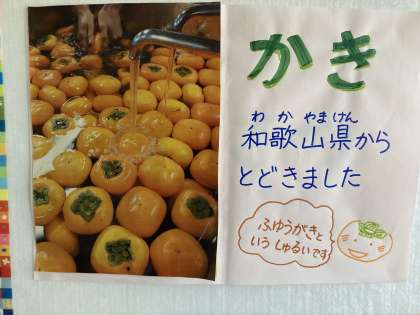 かき
わかやまけん
和歌山県から
とどきました
ふゆうがきと
いうしゅるいです